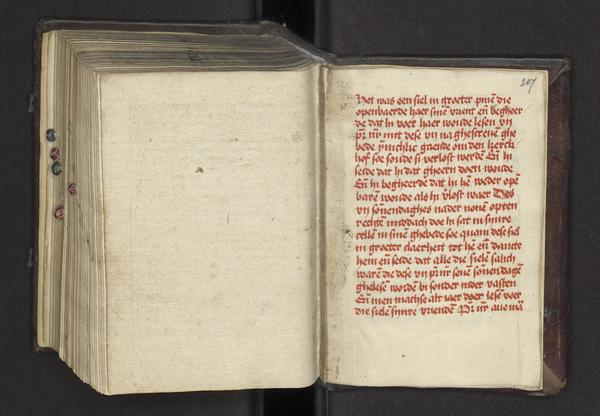 207
Het was een siel in groeter pinē die
openbaerde haer sinē vrient eñ begheer
de dat hi voer haer woude lesen vij
pr̄ nr̄ mit dese vij na ghescreuē ghe
bede ynichlic gaende om den kerck
hof soe soude si verlost werdē Eñ hi
seide dat hi dat gheern doen woude
Eñ hi begheerde dat hi hē weder opē
barē woude als hi v̄lost waer Des
vij sonnendaghes nader nonen opten
rechtē middach doe hi sat in sijnre
cellē in sinē ghebede soe quam dese siel
in groeter claerheit tot hē eñ dancte
hem eñ seide dat alle die sielē salich
warē die dese vij pr̄ nr̄ seuē sonnendagē
ghelesē wordē bisonder inder vasten
Eñ men machse alt iaer doer lesē voer
die sielē sijnre vriendē Pr̄ nr̄ aue ma